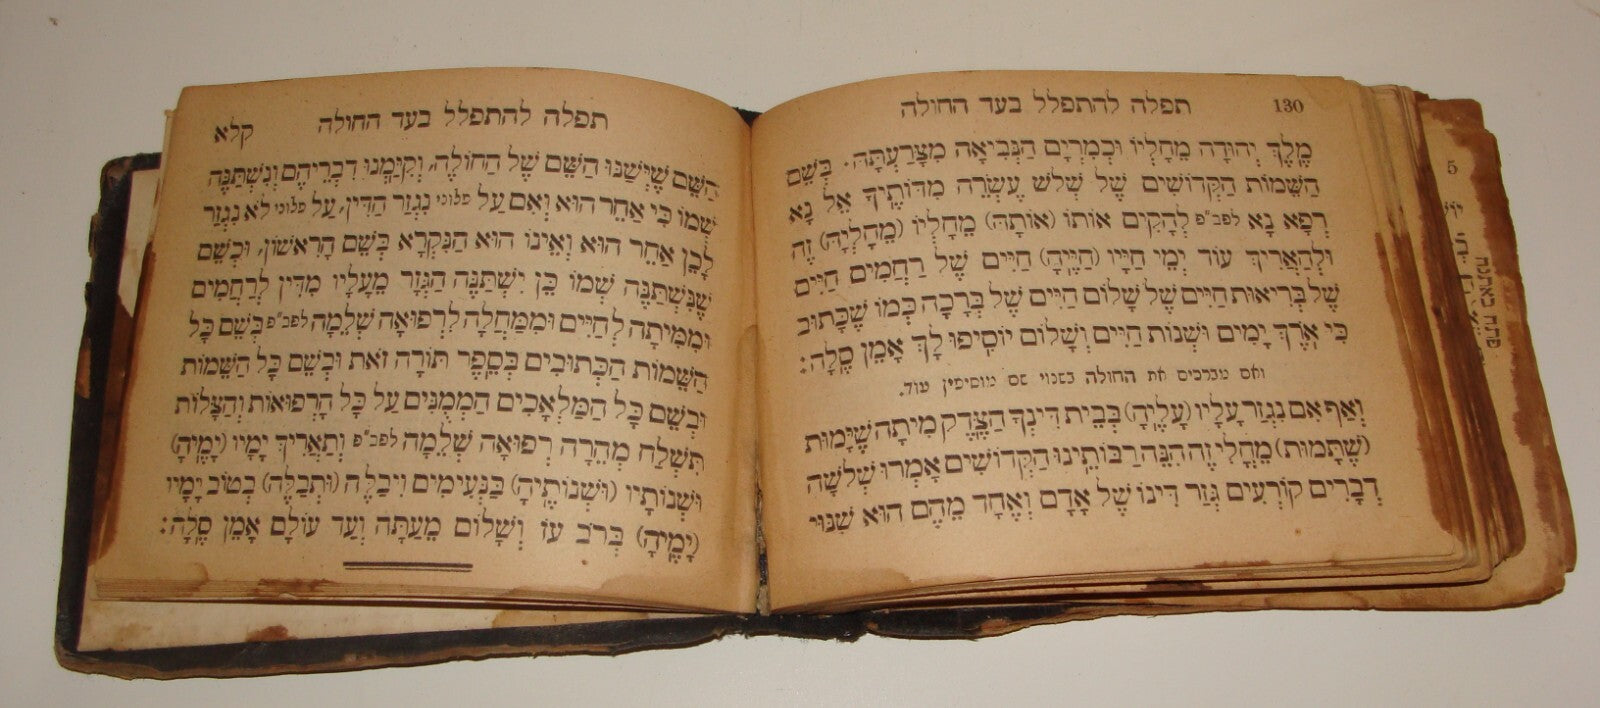 130 תפלה להתפלל בעד החולה
מֶלֶךְ יְהוּדָה מֵחָלְיוֹ וּכְמִרְיָם הַנְּבִיאָה מִצָּרַעְתָּהּ. בְּשֵׁם
הַשֵּׁמוֹת הַקְּדוֹשִׁים שֶׁל שְׁלֹשׁ עֶשְׂרֵה מִדּוֹתֶיךָ אֵל נָא
רְפָא נָא לפב״פ לְהָקִים אוֹתוֹ (אוֹתָהּ) מֵחָלְיוֹ (מֵחָלְיָהּ) זֶה
וּלְהַאֲרִיךְ עוֹד יְמֵי חַיָּיו (חַיֶּיהָ) חַיִּים שֶׁל רַחֲמִים חַיִּים
שֶׁל בְּרִיאוּת חַיִּים שֶׁל שָׁלוֹם חַיִּים שֶׁל בְּרָכָה כְּמוֹ שֶׁכָּתוּב
כִּי אֹרֶךְ יָמִים וּשְׁנוֹת חַיִּים וְשָׁלוֹם יוֹסִיפוּ לָךְ אָמֵן סֶלָה:
ואם מברכים את החולה בשנוי שם מוסיפין עוד.
וְאַף אִם נִגְזַר עָלָיו (עָלֶיהָ) בְּבֵית דִּינְךָ הַצֶּדֶק מִיתָה שֶׁיָּמוּת
(שֶׁתָּמוּת) מֵחֳלִי זֶה הִנֵּה רַבּוֹתֵינוּ הַקְּדוֹשִׁים אָמְרוּ שְׁלֹשָׁה
דְבָרִים קוֹרְעִים גְּזַר דִּינוֹ שֶׁל אָדָם וְאֶחָד מֵהֶם הוּא שִׁנּוּי
תפלה להתפלל בעד החולה קלא
הַשֵּׁם שֶׁיְּשַׁנּוּ הַשֵּׁם שֶׁל הַחוֹלֶה, וְקִיַּמְנוּ דִבְרֵיהֶם וְנִשְׁתַּנָּה
שְׁמוֹ כִּי אַחֵר הוּא וְאִם עַל פלוני נִגְזַר הַדִּין, עַל פלוני לֹא נִגְזַר
לָכֵן אַחֵר הוּא וְאֵינוֹ הוּא הַנִּקְרָא בְּשֵׁם הָרִאשׁוֹן, וּכְשֵׁם
שֶׁנִּשְׁתַּנָּה שְׁמוֹ כֵּן יִשְׁתַּנֶּה הַגְּזָר מֵעָלָיו מִדִּין לְרַחֲמִים
וּמִמִּיתָה לְחַיִּים וּמִמַּחֲלָה לִרְפוּאָה שְׁלֵמָה לפב״פ בְּשֵׁם כָּל
הַשֵּׁמוֹת הַכְּתוּבִים בְּסֵפֶר תּוֹרָה זֹאת וּבְשֵׁם כָּל הַשֵּׁמוֹת
וּבְשֵׁם כָּל הַמַּלְאָכִים הַמְמֻנִּים עַל כָּל הָרְפוּאוֹת וְהַצָּלוֹת
תִּשְׁלַח מְהֵרָה רְפוּאָה שְׁלֵמָה לפב״פ וְתַאֲרִיךְ יָמָיו (יָמֶיהָ)
וּשְׁנוֹתָיו (וּשְׁנוֹתֶיהָ) בַּנְּעִימִים וִיבַלֶּה (וּתְבַלֶּה) בְּטוֹב יָמָיו
(יָמֶיהָ) בְּרֹב עֹז וְשָׁלוֹם מֵעַתָּה וְעַד עוֹלָם אָמֵן סֶלָה:
5